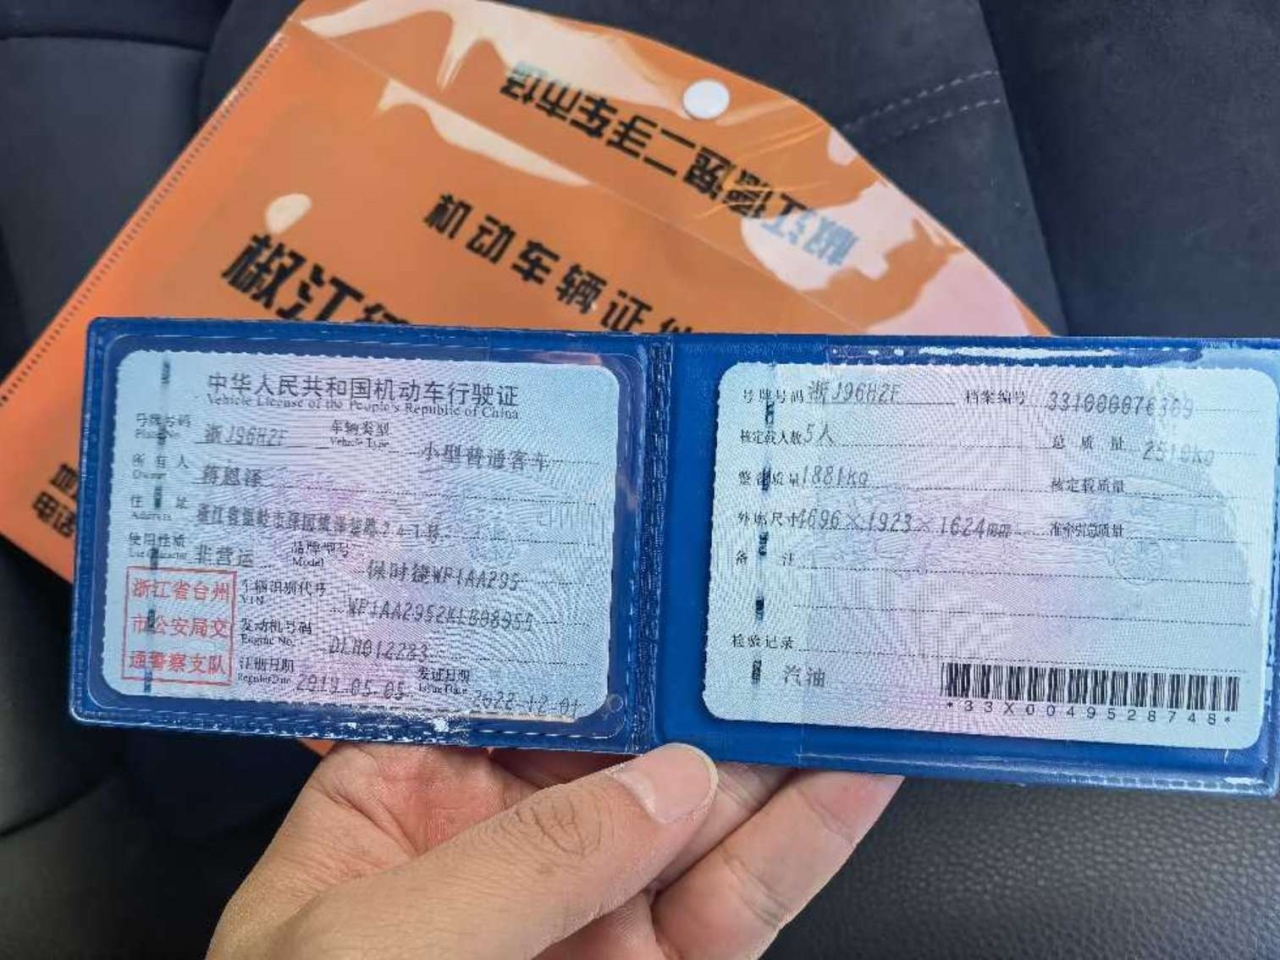 椒江德逸二手车市场
机动车辆证件
椒江德
电话
中华人民共和国机动车行驶证
Vehicle License of the People's Republic of China
号牌号码 浙J96HZF 车辆类型 小型普通客车
Plate No. Vehicle Type
所有人 蒋恩泽
Owner
住址
Address
使用性质 非营运 品牌型号 保时捷WP1AA295
Use Character Model
浙江省台州
市公安局交
通警察支队
车辆识别代号 WP1AA2952KLB08955
VIN
发动机号码 DLH012283
Engine No.
注册日期 2019.05.05 发证日期 2022-12-01
Register Date Issue Date
号牌号码 浙J96HZF 档案编号 331000076369
核定载人数 5人 总质量 2510KG
整备质量 1881KG 核定载质量
外廓尺寸 4696×1923×1624mm 准牵引总质量
备注
检验记录
汽油
*33X0049528748*